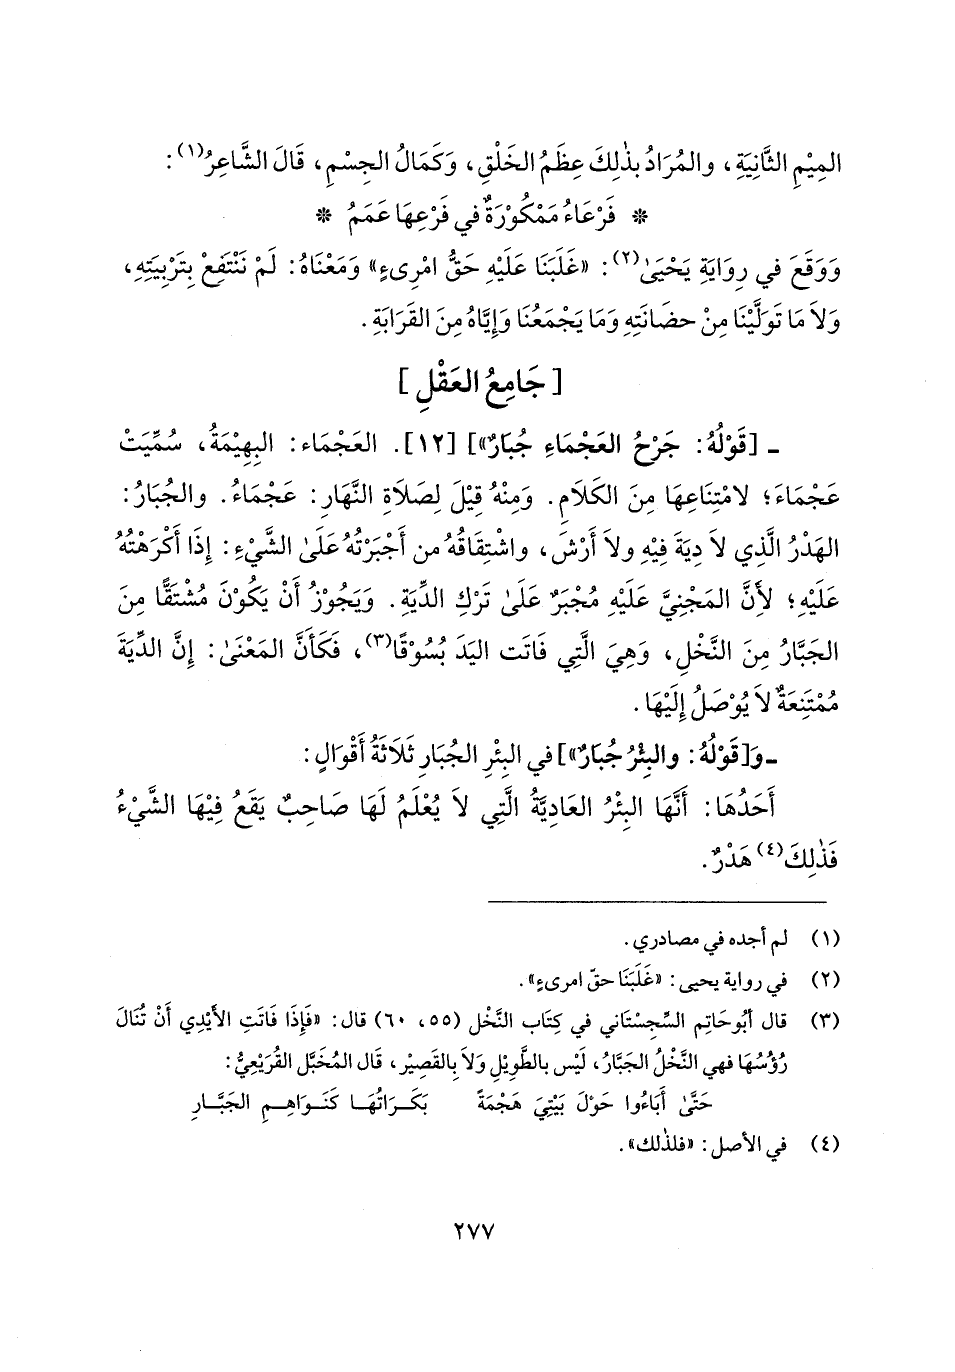 المِيْمِ الثَّانِيَةِ، والمُرَادُ بذٰلِكَ عِظَمُ الخَلْقِ، وَكَمَالُ الجِسْمِ، قَالَ الشَّاعِرُ(١):
* فَرْعَاءُ مَمْكُورَةٌ في فَرْعِهَا عَمَمُ *
وَوَقَعَ في رِوَايَةِ يَحْيَىٰ(٢): «غَلَبَنَا عَلَيْهِ حَقُّ امْرِىءٍ» وَمَعْنَاهُ: لَمْ نَنْتَفِعْ بِتَرْبِيَتِهِ،
وَلاَ مَا تَوَلَّيْنَا مِنْ حضَانَتِهِ وَمَا يَجْمَعُنَا وَإِيَّاهُ مِنَ القَرَابَةِ.
[جَامِعُ العَقْلِ]
ـ [قَوْلُهُ: جَرْحُ العَجْمَاءِ جُبَارٌ»] [١٢]. العَجْمَاء: البِهِيْمَةُ، سُمِّيَتْ
عَجْمَاءَ؛ لامْتِنَاعِهَا مِنَ الكَلَامِ. وَمِنْهُ قِيْلَ لِصَلَاةِ النَّهَارِ: عَجْمَاءُ. والجُبَارُ:
الهَدْرُ الَّذِي لاَ دِيَةَ فِيْهِ ولاَ أَرْشَ، واشْتِقَاقُهُ من أَجْبَرْتُهُ عَلَىٰ الشَّيْءِ: إِذَا أَكْرَهْتُهُ
عَلَيْهِ؛ لأَِنَّ المَجْنِيَّ عَلَيْهِ مُجْبَرٌ عَلَىٰ تَرْكِ الدِّيَةِ. وَيَجُوْزُ أَنْ يَكُوْنَ مُشْتَقًّا مِنَ
الجَبَّارُ مِنَ النَّخْلِ، وَهِيَ الَّتِي فَاتَت اليَدَ بُسُوْقًا(٣)، فَكَأَنَّ المَعْنَىٰ: إِنَّ الدِّيَةَ
مُمْتَنِعَةٌ لاَ يُوْصَلُ إِلَيْهَا.
ـ وَ[قَوْلُهُ: والبِئْرُ جُبَارٌ»] في البِئْرِ الجُبَارِ ثَلَاثَةُ أَقْوَالٍ:
أَحَدُهَا: أَنَّهَا البِئْرُ العَادِيَّةُ الَّتِي لاَ يُعْلَمُ لَهَا صَاحِبٌ يَقَعُ فِيْهَا الشَّيْءُ
فَذٰلِكَ(٤) هَدْرٌ.
(١) لم أجده في مصادري.
(٢) في رواية يحيى: «غَلَبَنَا حقّ امرىءٍ».
(٣) قال أَبُوحَاتِم السِّجِسْتَاني في كِتَاب النَّخْل (٥٥، ٦٠) قال: «فَإِذَا فَاتَتِ الأَيْدِي أَنْ تُنَالَ
رُؤُسُهَا فهي النَّخْلُ الجَبَّارُ، لَيْس بالطَّوِيْلِ وَلاَ بِالقَصِيْرِ، قَال المُخَبَّل القُرَيْعِيُّ:
حَتَّىٰ أَبَاءُوا حَوْلَ بَيْتِيَ هَجْمَةً    بَكَـرَاتُهَـا كَنَـوَاهِـمِ الجَبَّـارِ
(٤) في الأصل: «فلذٰلك».
٢٧٧